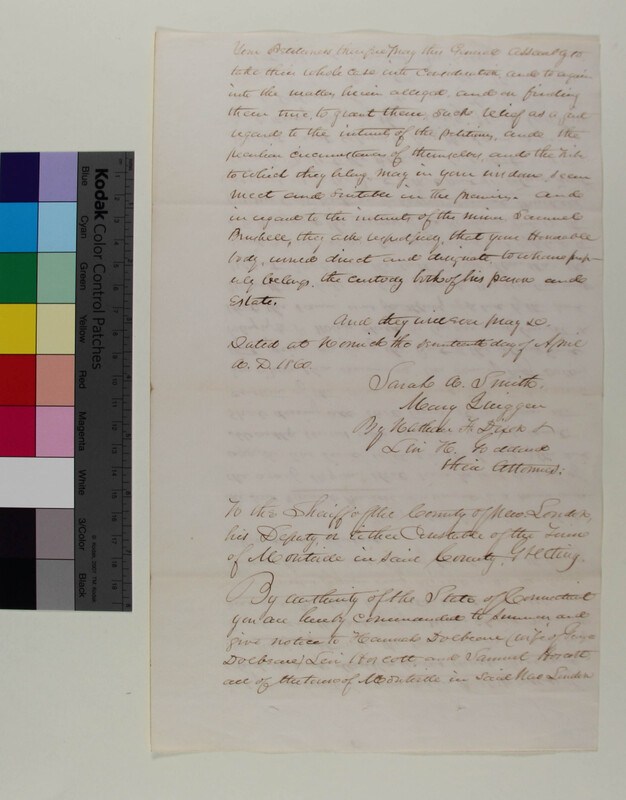 Your Petitioners therefore Pray this General Assembly to
take their whole case into Consideration, and to again
into the matters herein alleged, and on finding
them true, to grant them, such relief as a just
regard to the interests of the petitioners, and the
peculiar circumstances of themselves, and the tribe
to which they belong may in your wisdom seem
meet and suitable in the premises. And
in regard to the interests of the minor Samuel
Brushell, they ask respectfully, that your Honorable
body, would direct and designate to whom prop-
erly belongs, the custody both of his person and
Estate.
And they will ever pray &c.
Dated at Norwich the seventeenth day of April
A. D. 1860.
Sarah A. Smith.
Mary
By Nathan F. Dixon &
Levi H. Goddard
their Attorneys.
To the Sheriff of the County of New London,
his Deputy or Either Constable of the Town
of Montville in said County. Greeting.
By authority of the State of Connecticut
you are hereby commanded to summon, and
give notice to Hannah Dolbeare (wife of
Dolbeare) Levi and Samuel
all of the town of Montville in said New London
Kodak Color Control Patches
Blue
Cyan
Green
Yellow
Red
Magenta
White
3/Color
Black